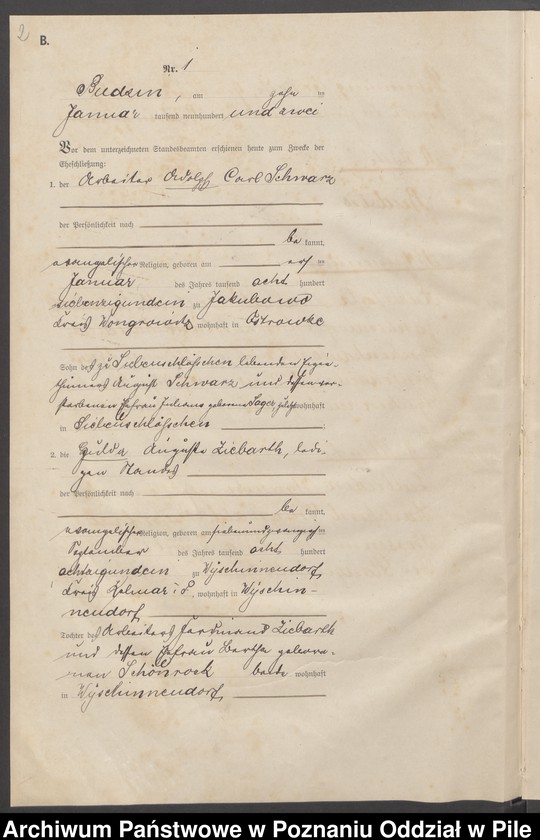 2
B.
Nr. 1
Budsin, am zehn ten
Januar tausend neunhundert und zwei
Vor dem unterzeichneten Standesbeamten erschienen heute zum Zwecke der
Eheschließung:
1. der Arbeiter Adolph Carl Schwarz
der Persönlichkeit nach
be kannt,
evangelischer Religion, geboren am ten
Januar des Jahres tausend acht hundert
siebenzigundein zu Jakubowo
Kreis Wongrowitz wohnhaft in Ostrowke
Sohn des zu Siebenschlößchen lebenden Eigen-
thümers August Schwarz und dessen ver-
storbenen Ehefrau Juliane geborene Sager, zuletzt wohnhaft
in Siebenschlößchen ;
2. die Hulda Auguste Ziebarth, ledi-
gen Standes
der Persönlichkeit nach
be kannt,
evangelischer Religion, geboren am siebenundzwanzigsten
September des Jahres tausend acht hundert
achtzigundein zu Wyschinnendorf
Kreis Kolmar i/P., wohnhaft in Wyschin-
nendorf
Tochter des Arbeiters Ferdinand Ziebarth
und dessen Ehefrau Bertha gebore-
nen Schönrock beide wohnhaft
in Wyschinnendorf
Archiwum Państwowe w Poznaniu Oddział w Pile